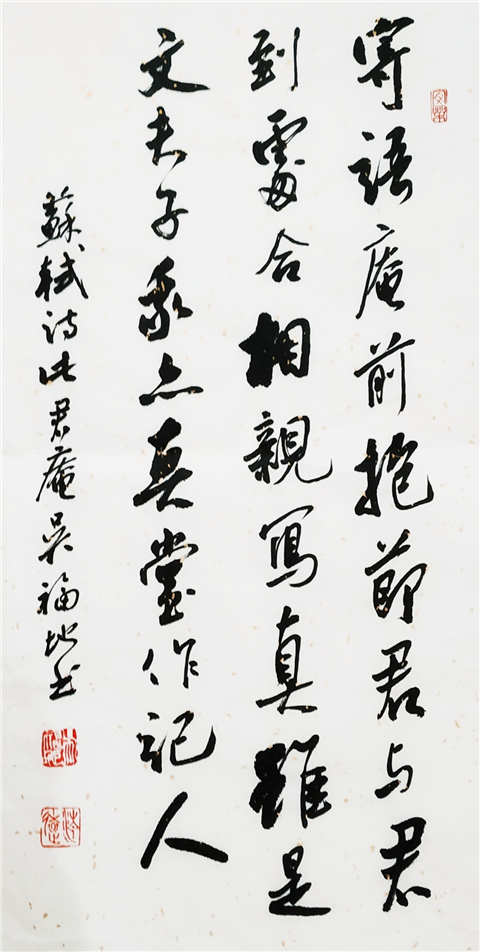 寄語庵前抱節君与君
到處合相親寫真雖是
文夫子我亦真堂作記人
蘇軾詩此君庵吳福地书